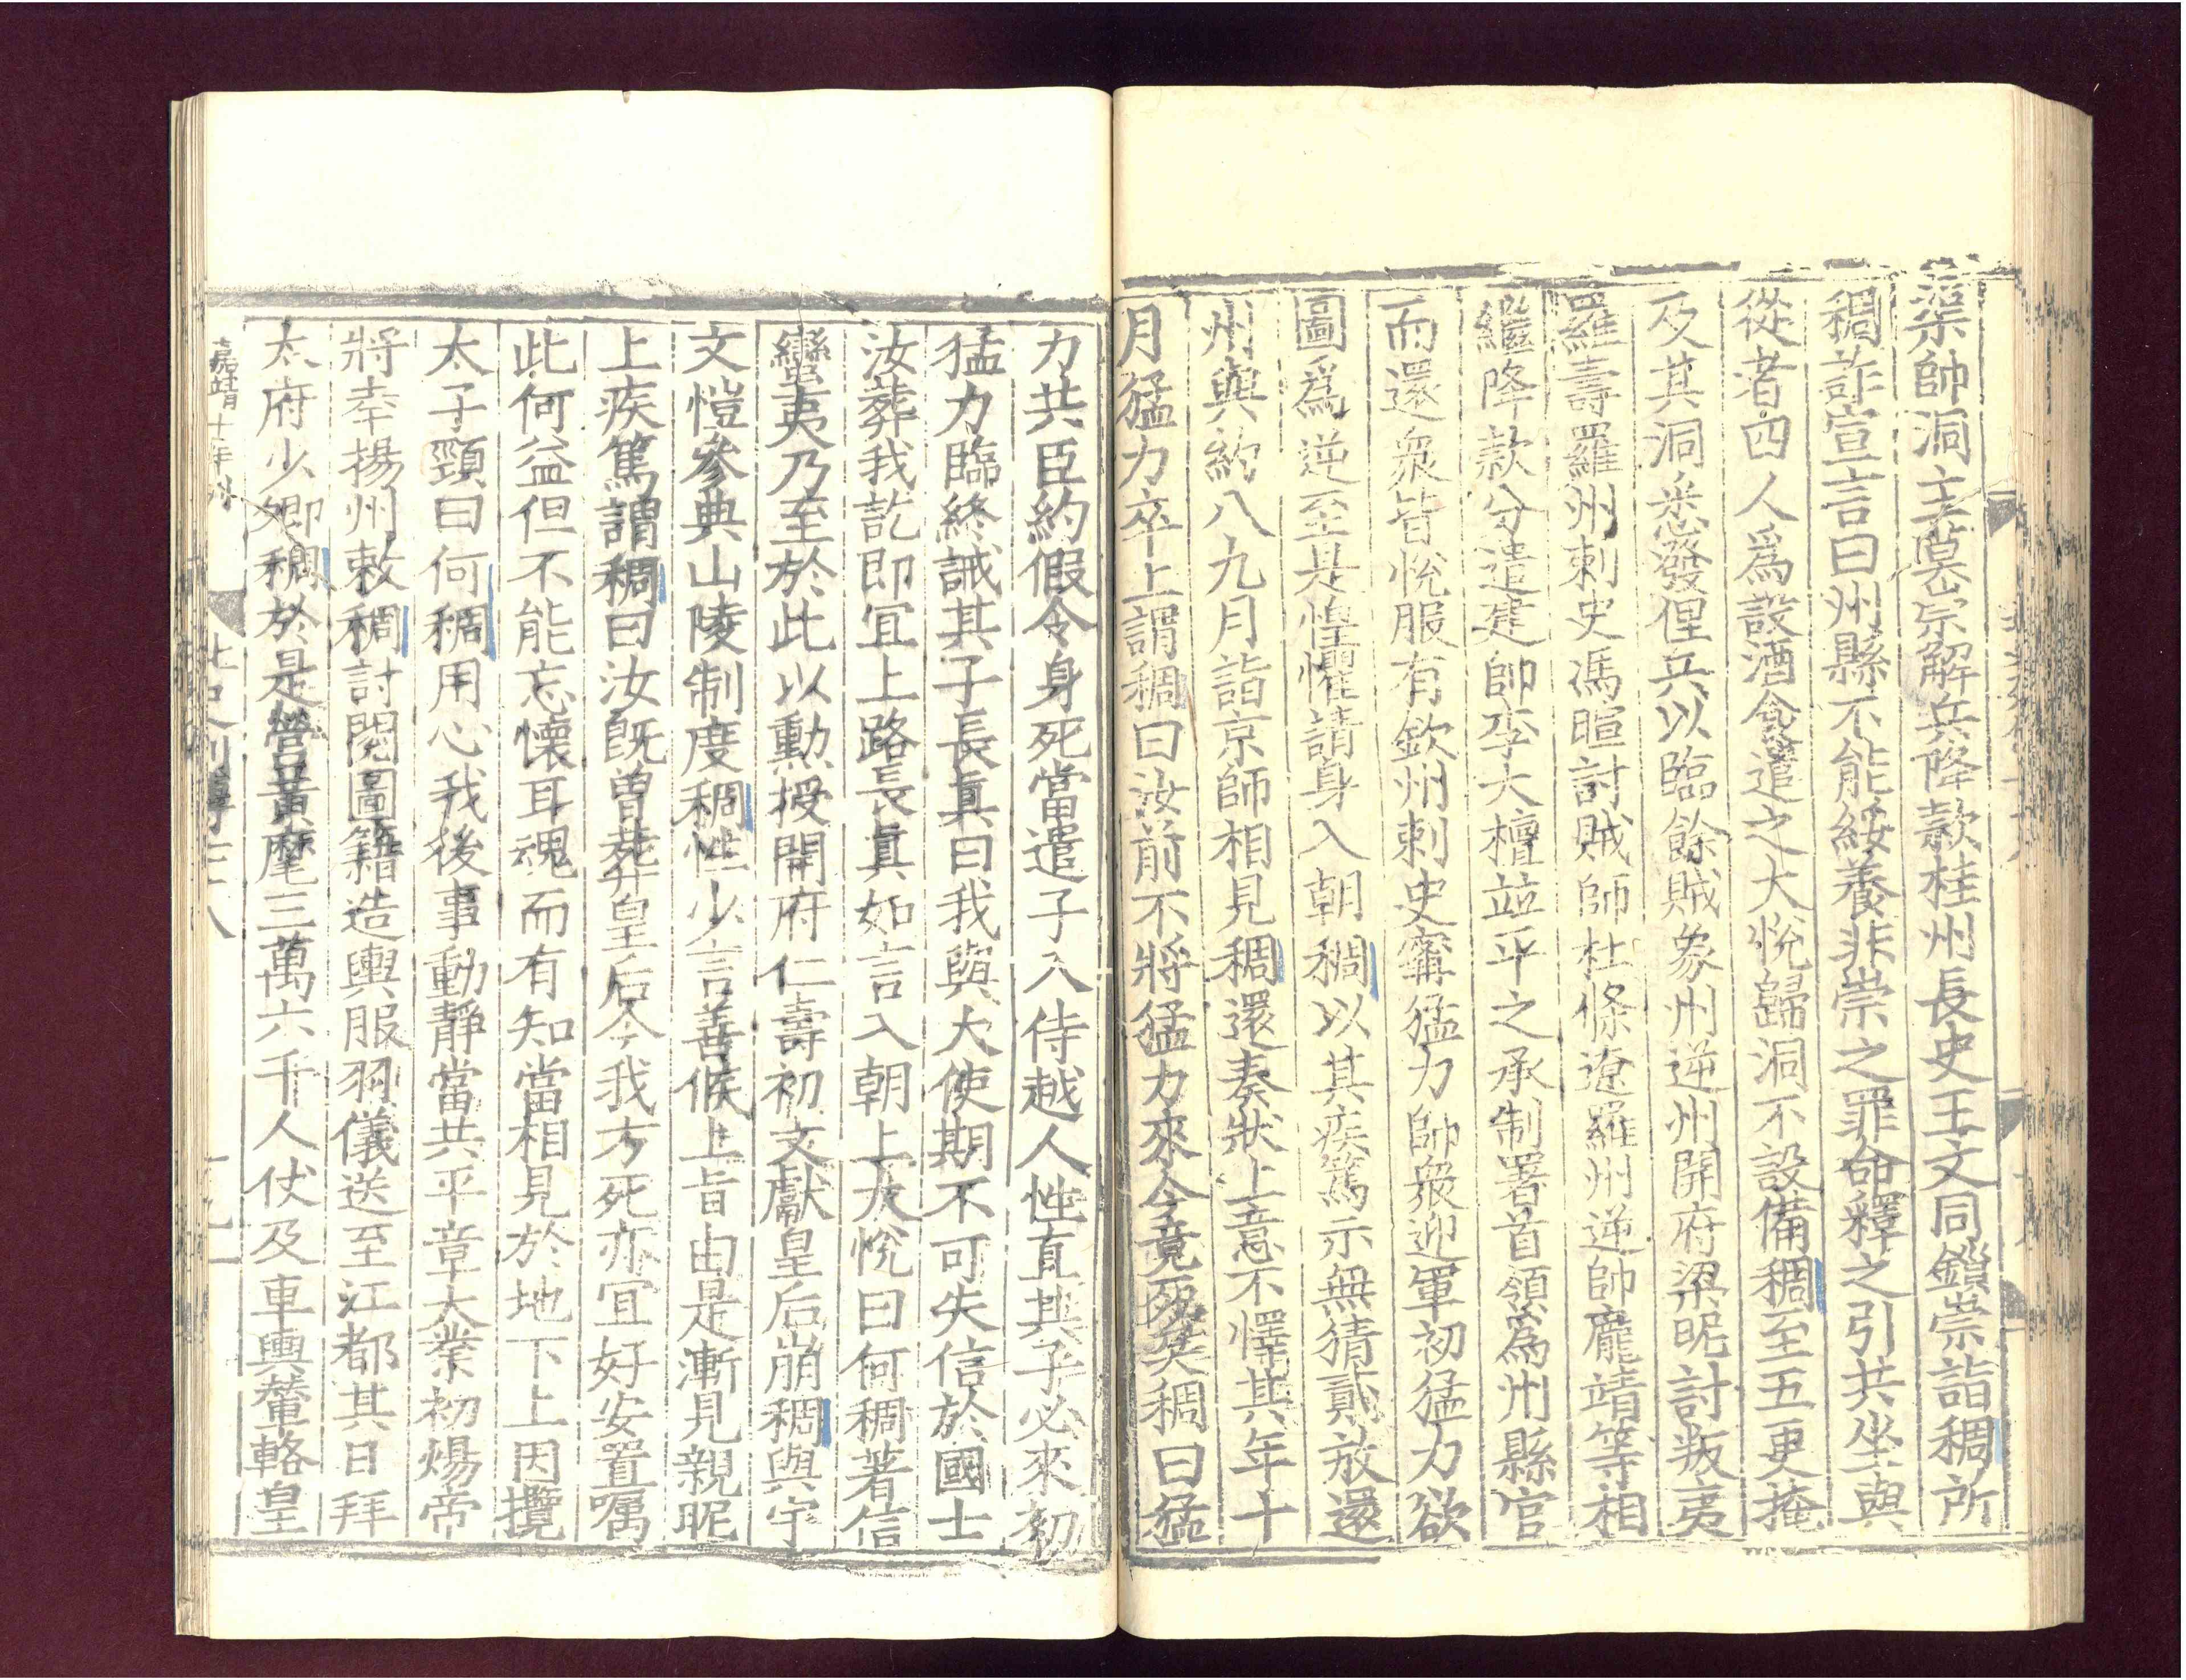 渠帥洞主莫崇解兵降款桂州長史王文同鎖崇詣稠所
稠詐宣言曰州縣不能綏養非崇之罪命釋之引共坐與
從者四人爲設酒食遣之大悅歸洞不設備稠至五更掩
及其洞悉發俚兵以臨餘賊象州逆州開府梁昵討叛夷
羅壽羅州刺史馮暄討賊帥杜條遼羅州逆帥龐靖等相
繼降款分遣建帥李大檀並平之承制署首領爲州縣官
而還衆皆悅服有欽州刺史甯猛力帥衆迎軍初猛力欲
圖爲逆至是惶懼請身入朝稠以其疾篤示無猜貳放還
州與約八九月詣京師相見稠還奏狀上意不懌其年十
月猛力卒上謂稠曰汝前不將猛力來今竟死矣稠曰猛
力共臣約假令身死當遣子入侍越人性直其子必來初
猛力臨終誡其子長眞曰我與大使期不可失信於國士
汝葬我訖即宜上路長眞如言入朝上大悅曰何稠著信
蠻夷乃至於此以勳授開府仁壽初文獻皇后崩稠與宇
文愷參典山陵制度稠性少言善候上旨由是漸見親昵
上疾篤謂稠曰汝旣曾葬皇后今我方死亦宜好安置囑
此何益但不能忘懷耳魂而有知當相見於地下上因攬
太子頸曰何稠用心我後事動靜當共平章大業初煬帝
將幸揚州敕稠討閱圖籍造輿服羽儀送至江都其日拜
太府少卿稠於是營黃麾三萬六千人仗及車輿輦輅皇
嘉靖十年刊
北史列傳三八